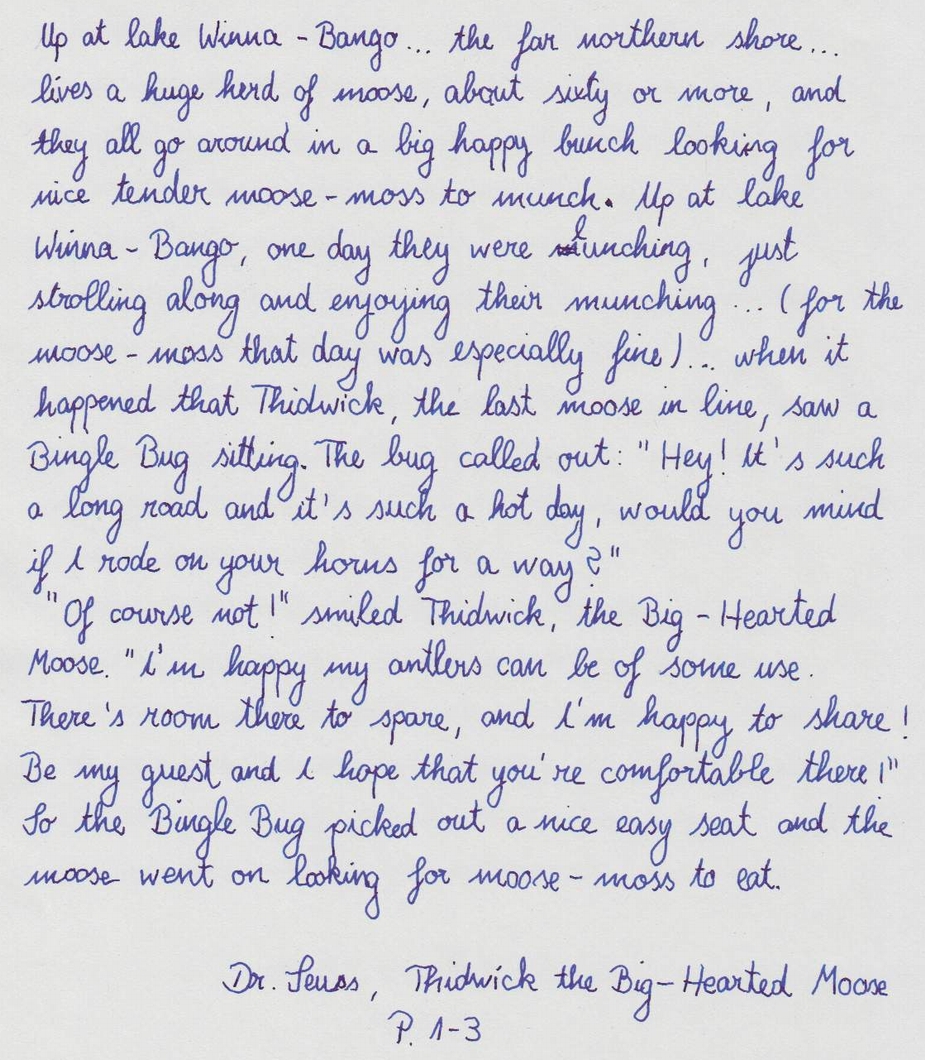 Up at lake Winna - Bango... the far northern shore...
lives a huge herd of moose, about sixty or more, and
they all go around in a big happy bunch looking for
nice tender moose - moss to munch. Up at lake
Winna - Bango, one day they were lunching, just
strolling along and enjoying their munching ... (for the
moose - moss that day was especially fine)... when it
happened that Thidwick, the last moose in line, saw a
Bingle Bug sitting. The bug called out: "Hey! It's such
a long road and it's such a hot day, would you mind
if I rode on your horns for a way?"
"Of course not!" smiled Thidwick, the Big - Hearted
Moose. "I'm happy my antlers can be of some use.
There's room there to spare, and I'm happy to share!
Be my guest and I hope that you're comfortable there!"
So the Bingle Bug picked out a nice easy seat and the
moose went on looking for moose - moss to eat.
Dr. Seuss, Thidwick the Big - Hearted Moose
P. 1-3